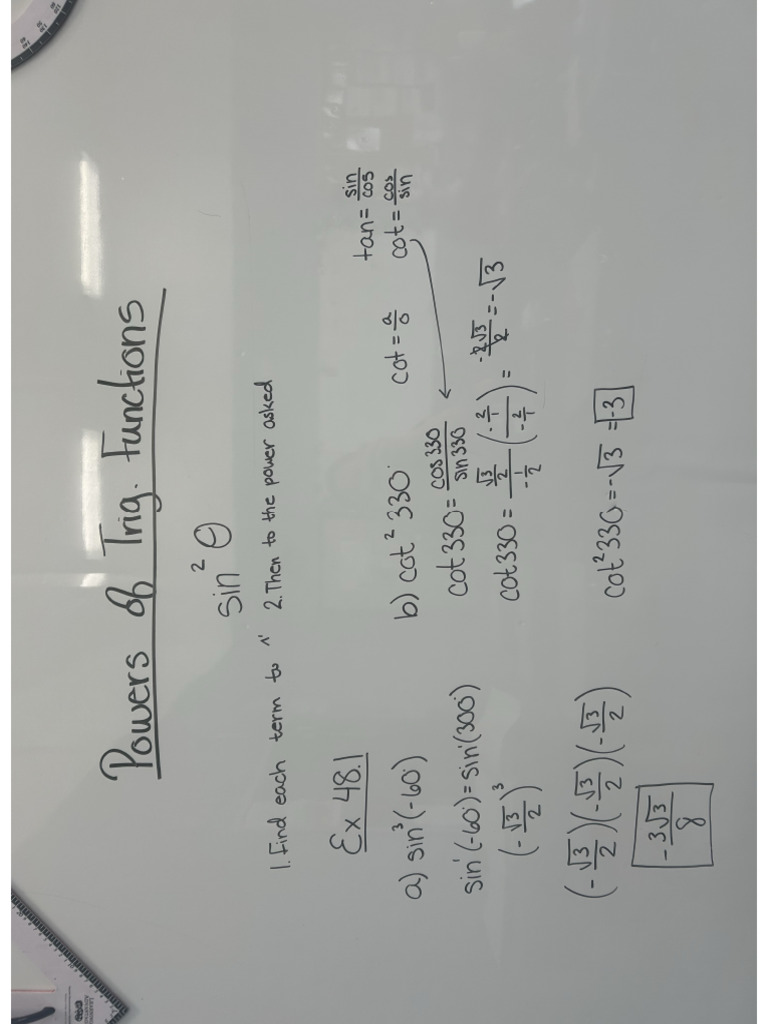 Powers of Trig. Functions
sin² θ
1. Find each term to ^1 2. Then to the power asked
Ex 48.1
a) sin³(-60°)
sin¹(-60°) = sin¹(300°)
(-√3/2)³
(-√3/2)(-√3/2)(-√3/2)
-3√3/8
b) cot² 330°
cot = a/o
tan = sin/cos
cot = cos/sin
cot 330 = cos 330/sin 330
cot 330 = (√3/2)/(-1/2) ((-2/1)/(-2/1)) = -2√3/2 = -√3
cot² 330 = -√3 = -3